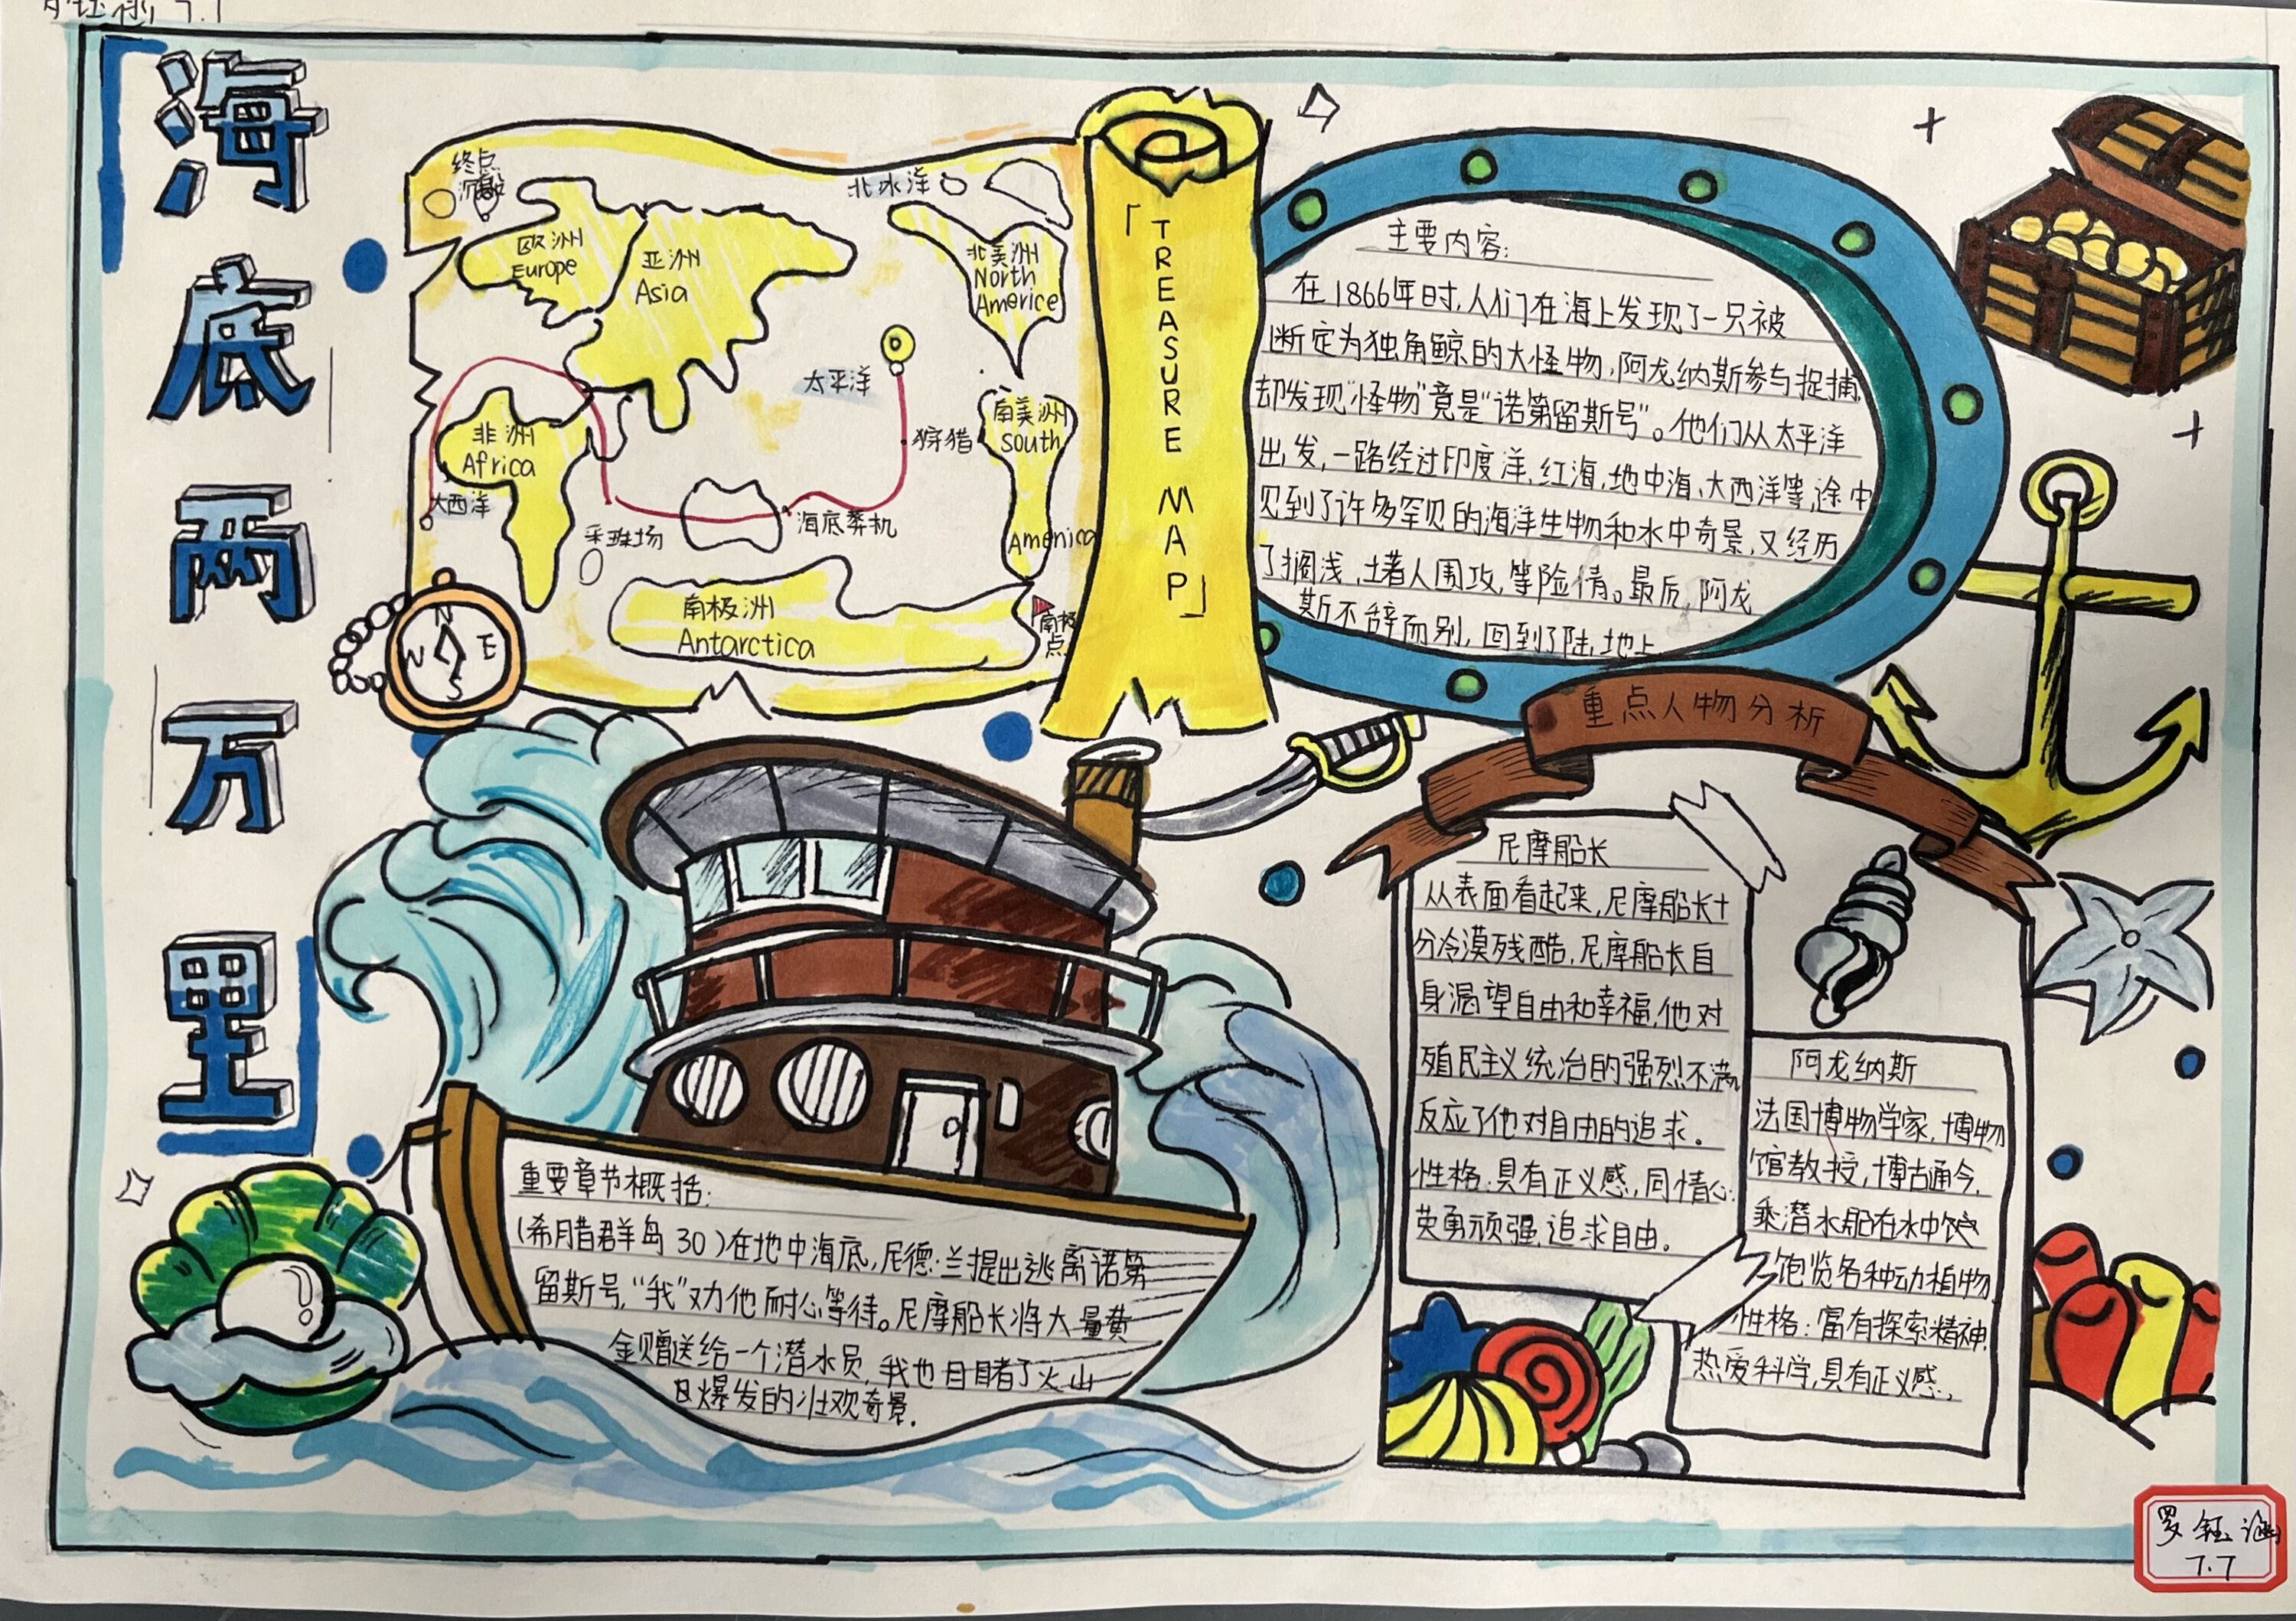 海底两万里
终点
沉船
北冰洋
欧洲
Europe
亚洲
Asia
北美洲
North
Americe
太平洋
狩猎
南美洲
South
America
非洲
Africa
大西洋
采珠场
海底葬机
南极洲
Antarctica
南极
点
N
E
S
「TREASURE MAP」
主要内容:
在1866年时,人们在海上发现了一只被
断定为独角鲸的大怪物,阿龙纳斯参与捉捕,
却发现“怪物”竟是“诺第留斯号”。他们从太平洋
出发,一路经过印度洋,红海,地中海、大西洋等,途中
见到了许多罕见的海洋生物和水中奇景,又经历
了搁浅,土著人围攻,等险情。最后,阿龙
斯不辞而别,回到了陆地上
重点人物分析
尼摩船长
从表面看起来,尼摩船长十
分冷漠残酷,尼摩船长自
身渴望自由和幸福,他对
殖民主义统治的强烈不满,
反应了他对自由的追求。
性格:具有正义感,同情心:
英勇顽强,追求自由。
阿龙纳斯
法国博物学家,博物
馆教授,博古通今,
乘潜水船在水中
饱览各种动植物
性格:富有探索精神,
热爱科学,具有正义感,
重要章节概括:
(希腊群岛30)在地中海底,尼德·兰提出逃离诺第
留斯号,“我”劝他耐心等待。尼摩船长将大量黄
金赠送给一个潜水员,我也目睹了火山
爆发的壮观奇景.
罗钰涵
7.7